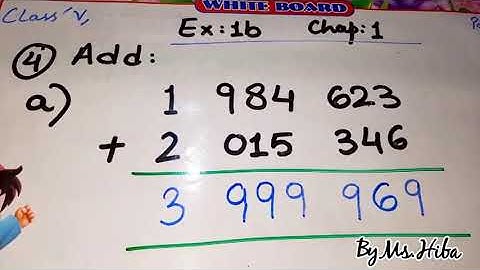 WHITE BOARD
Class V,
Ex:1b Chap:1
4 Add:
a) 1 984 623
+ 2 015 346
3 999 969
By Ms. Hiba